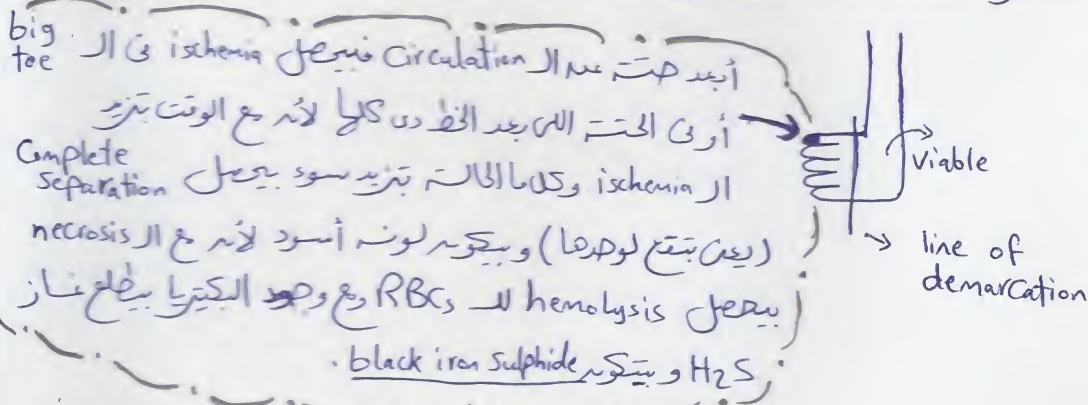 أبعد حتة عن الـ Circulation فبيحصل ischemia فى الـ big toe
أو فى الحتة اللى بعد الخط دى كلها لأنه مع الوقت بتزيد
الـ ischemia وكل ما الحالة بتزيد سوء بيحصل Complete separation
(يعنى بتقع لوحدها) وبيكون لونه أسود لأنه مع الـ necrosis
بيحصل hemolysis للـ RBCs ومع وجود البكتيريا بيطلع غاز
H2S وبيتكون black iron sulphide.
viable
line of
demarcation